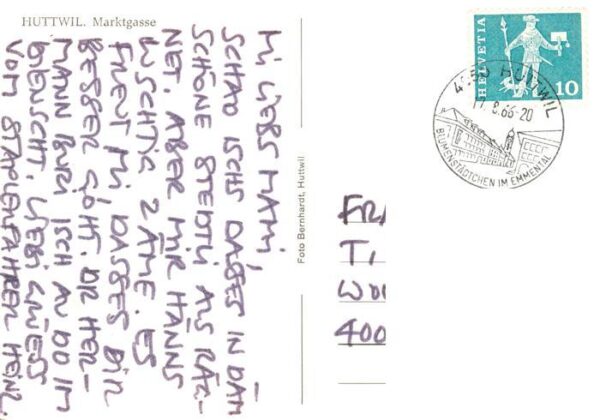 HUTTWIL. Marktgasse
MI LIEBS MAMI,
SCHAD ISCHS DASSES IN DÄM
SCHÖNE STEDTLI ALS RÄG-
NET. ABER MIR HÄNNS
LUSCHTIG ZÄME. ES
FREUT MI DASSES DIR
BESSER GOHT. DR HER-
MANN BURI ISCH AU DO IM
DIENSCHT. LIEBI GRÜESS
VOM STAPLENFAHRER HEINZ.
Foto Bernhardt, Huttwil
HELVETIA 10
HUTTWIL
8.66-20
BLUMENSTÄDTCHEN IM EMMENTAL
FRA
T
400